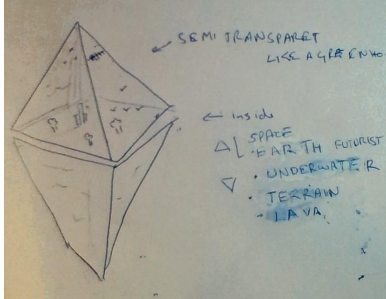 SEMI TRANSPARET
LIKE A GREENHO
← Inside
SPACE
EARTH FUTURIST
• UNDERWATER
• TERRAIN
• LAVA